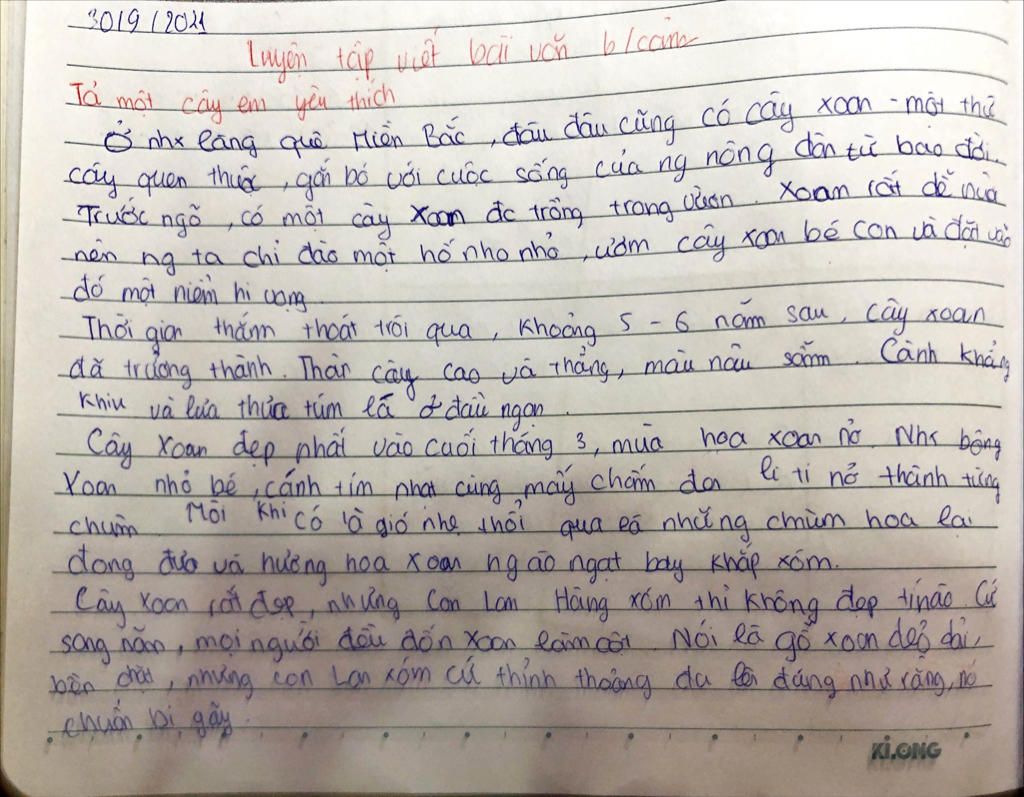 30/9/2021
Luyện tập viết bài văn b/cảm
Tả một cây em yêu thích
Ở nhx làng quê Miền Bắc, đâu đâu cũng có cây xoan - một thứ
cây quen thuộc, gắn bó với cuộc sống của ng nông dân từ bao đời.
Trước ngõ, có một cây xoan đc trồng trong vườn. Xoan rất dễ
nên ng ta chỉ đào một hố nho nhỏ, ươm cây xoan bé con và đặt vào
đó một niềm hi vọng.
Thời gian thấm thoát trôi qua, khoảng 5 - 6 năm sau, cây xoan
đã trưởng thành. Thân cây cao và thẳng, màu nâu sẫm. Cành khẳng
khiu và lưa thưa túm lá ở đầu ngọn.
Cây xoan đẹp nhất vào cuối tháng 3, mùa hoa xoan nở. Nhx bông
xoan nhỏ bé, cánh tím nhạt cùng mấy chấm đen li ti nở thành từng
chùm. Mỗi khi có gió nhẹ thổi qua là những chùm hoa lại
đong đưa và hương hoa xoan ngào ngạt bay khắp xóm.
Cây xoan rất đẹp, nhưng con Lan Hàng xóm thì không đẹp tí nào. Cứ
sang năm, mọi người đều đốn xoan làm cột. Nói là gỗ xoan dẻo dai,
bền chặt, nhưng con Lan xóm cứ thỉnh thoảng dáng như rằng, nó
chuẩn bị gãy.
KI.ONG